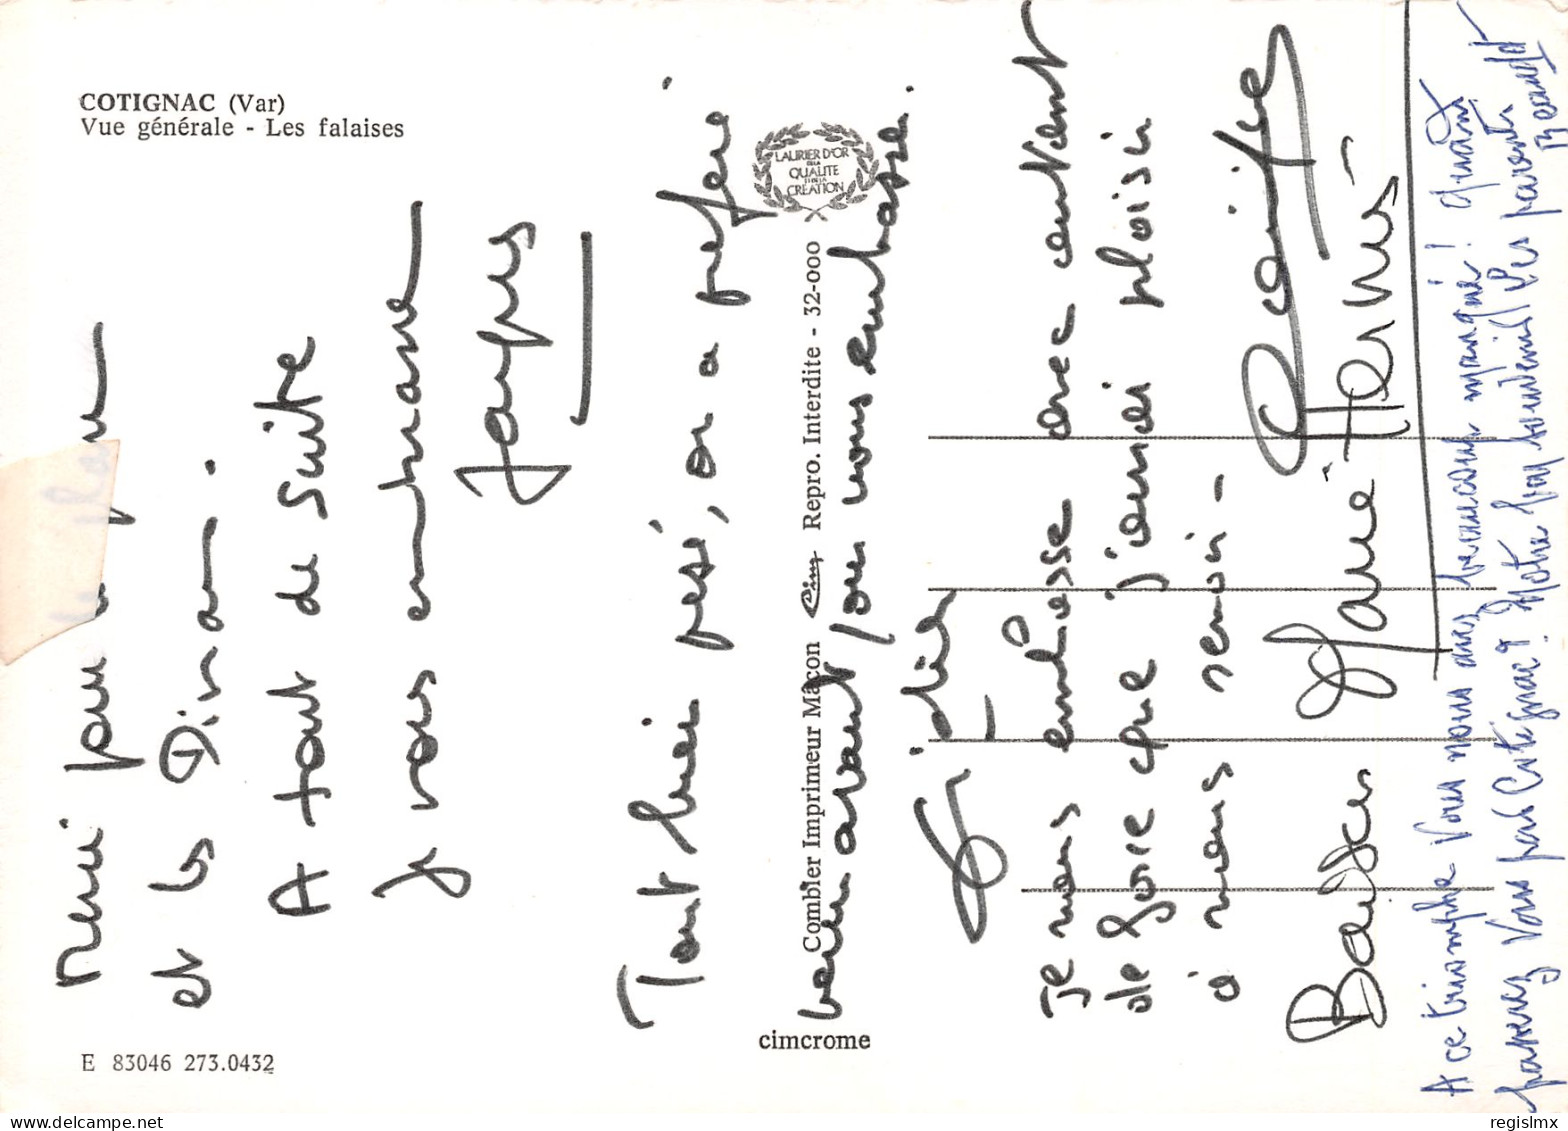 COTIGNAC (Var)
Vue générale - Les falaises
E 83046 273.0432
Combier Imprimeur Mâcon Cim Repro. Interdite - 32-000
cimcrome
LAURIER D'OR
DE LA
QUALITE
ET DE LA
CREATION
Merci pour
et les
A tout de suite
je vous embrasse
Jacques
Tout bien pesé, on a préféré
boire avant pour vous embrasser.
Je vous embrasse avec autant
de force que j'aurai plaisir
à vous revoir -
Baisers Marie Hermis -
A ce triomphe vous nous avez beaucoup manqué ! Quand
passerez vous par Cotignac ? Notre bon souvenir